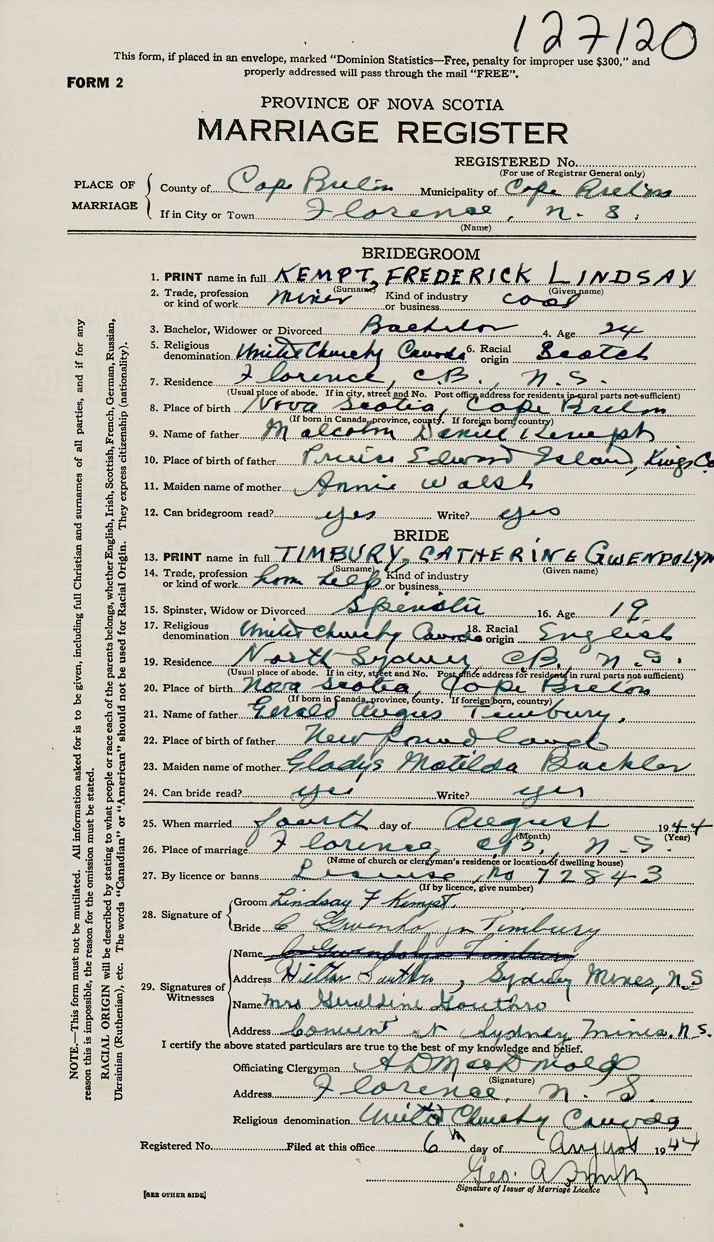 127120
This form, if placed in an envelope, marked "Dominion Statistics—Free, penalty for improper use $300," and
properly addressed will pass through the mail "FREE".
FORM 2
PROVINCE OF NOVA SCOTIA
MARRIAGE REGISTER
REGISTERED No.
(For use of Registrar General only)
PLACE OF MARRIAGE
County of Cape Breton Municipality of Cape Breton
If in City or Town Florence, N. S.
(Name)
BRIDEGROOM
1. PRINT name in full KEMPT, FREDERICK LINDSAY
(Surname) (Given name)
2. Trade, profession or kind of work miner Kind of industry or business coal
3. Bachelor, Widower or Divorced Bachelor 4. Age 24
5. Religious denomination United Church of Canada 6. Racial origin Scotch
7. Residence Florence, C.B., N.S.
(Usual place of abode. If in city, street and No. Post office address for residents in rural parts not sufficient)
8. Place of birth Nova Scotia, Cape Breton
(If born in Canada, province, county. If foreign born, country)
9. Name of father Malcolm Daniel Kempt
10. Place of birth of father Prince Edward Island, Kings Co
11. Maiden name of mother Annie Walsh
12. Can bridegroom read? yes Write? yes
BRIDE
13. PRINT name in full TIMBURY, CATHERINE GWENDOLYN
(Surname) (Given name)
14. Trade, profession or kind of work hom help Kind of industry or business
15. Spinster, Widow or Divorced Spinster 16. Age 19
17. Religious denomination United Church of Canada 18. Racial origin English
19. Residence North Sydney, C.B., N.S.
(Usual place of abode. If in city, street and No. Post office address for residents in rural parts not sufficient)
20. Place of birth Nova Scotia, Cape Breton
(If born in Canada, province, county. If foreign born, country)
21. Name of father Gerald Angus Timbury,
22. Place of birth of father Newfoundland
23. Maiden name of mother Gladys Matilda Buckler
24. Can bride read? yes Write? yes
25. When married fourth day of August 1944
(Month) (Year)
26. Place of marriage Florence, C.B., N.S.
(Name of church or clergyman's residence or location of dwelling house)
27. By licence or banns License, No 72843
(If by licence, give number)
28. Signature of
Groom Lindsay F Kempt.
Bride C Timbury
29. Signatures of Witnesses
Name C Gwendolyn Timbury
Address Sydney Mines, N.S
Name Mrs Geraldine Gouthro
Address Convent St Sydney Mines. N.S.
I certify the above stated particulars are true to the best of my knowledge and belief.
Officiating Clergyman A D MacDonald
(Signature)
Address Florence, N. S.
Religious denomination United Church of Canada
Registered No. Filed at this office 6th day of August 1944
Geo. A
Signature of Issuer of Marriage Licence
[SEE OTHER SIDE]
NOTE.—This form must not be mutilated. All information asked for is to be given, including full Christian and surnames of all parties, and if for any
reason this is impossible, the reason for the omission must be stated.
RACIAL ORIGIN will be described by stating to what people or race each of the parents belongs, whether English, Irish, Scottish, French, German, Russian,
Ukrainian (Ruthenian), etc. The words "Canadian" or "American" should not be used for Racial Origin. They express citizenship (nationality).